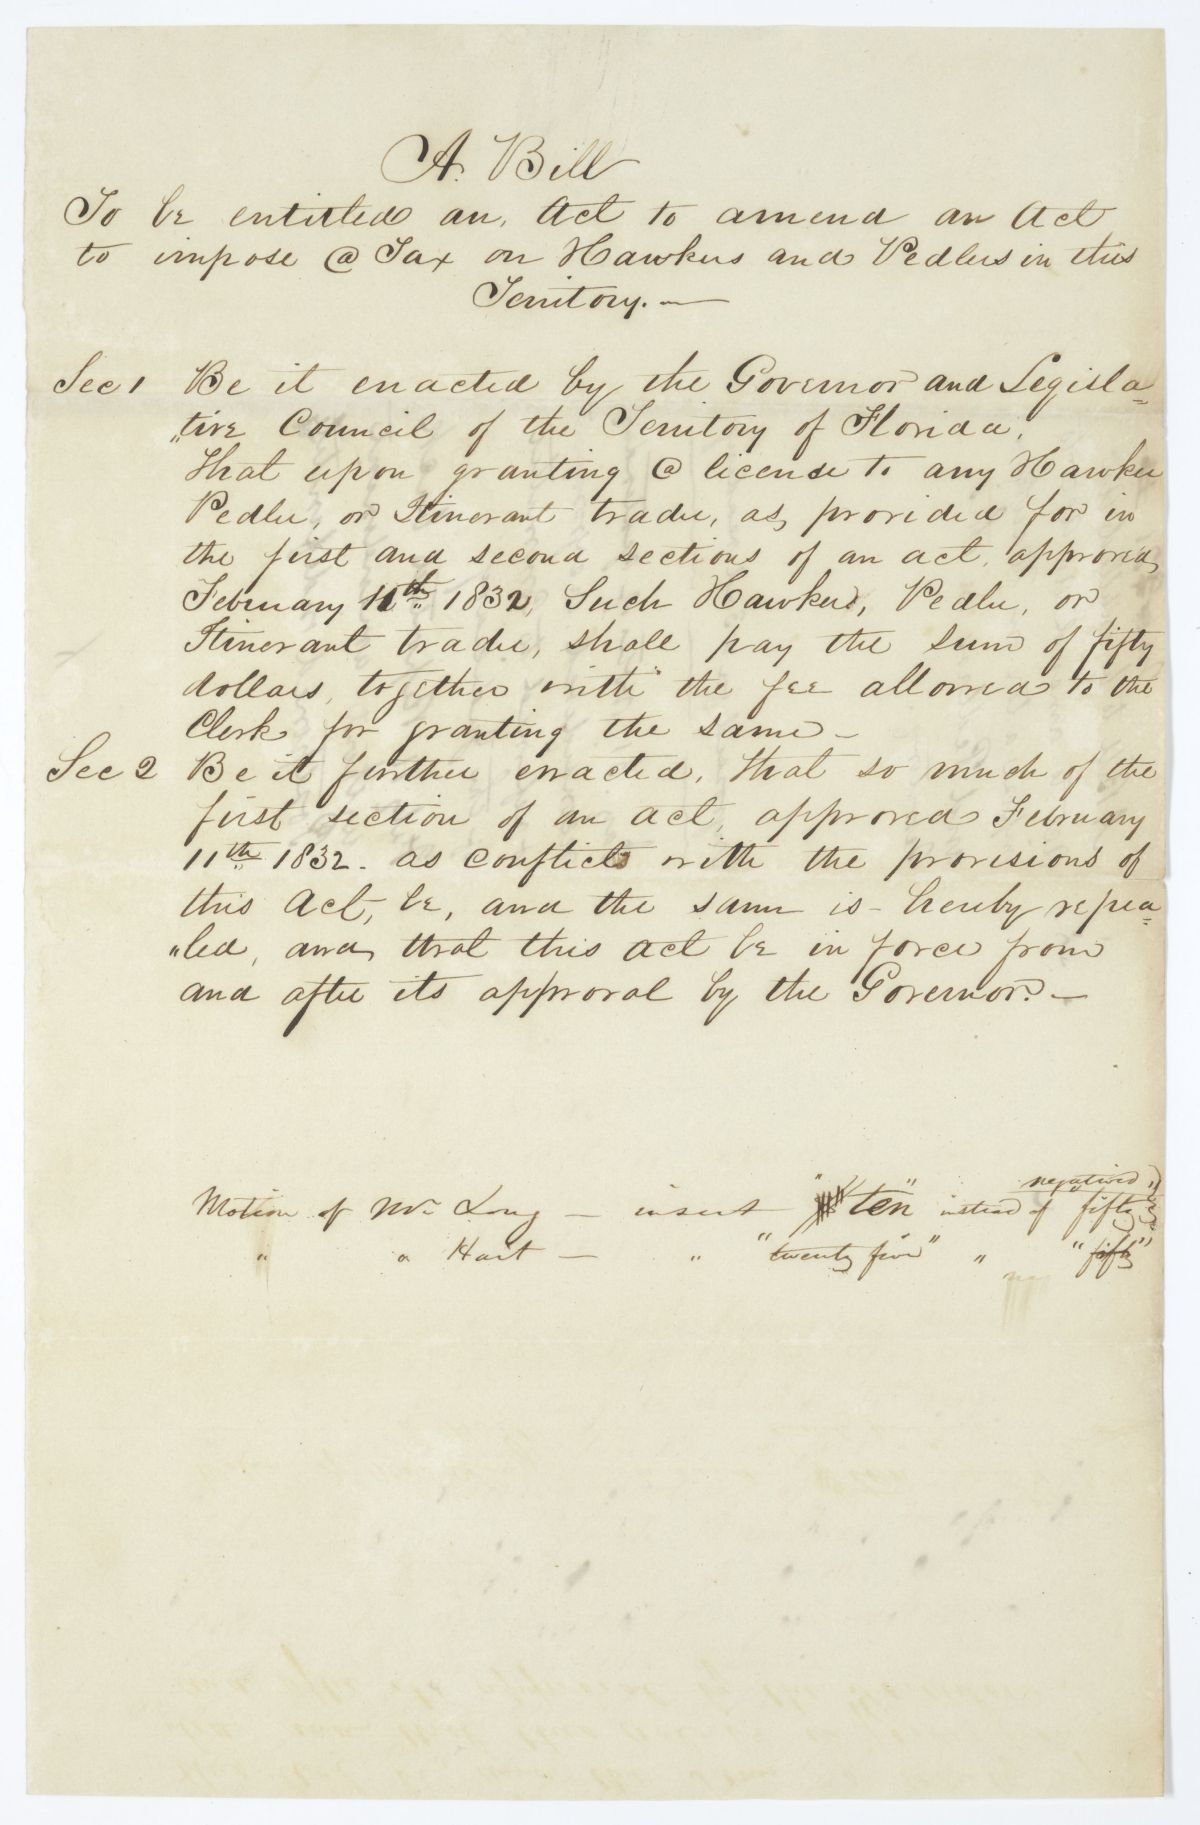 A. Bill
To be entitled an, Act to amend an Act
to impose @ Tax on Hawkers and Pedlers in this
Territory. —
Sec 1 Be it enacted by the Governor and Legisla=
"tive Council of the Territory of Florida,
That upon granting @ license to any Hawker
Pedler, or Itinerant trader, as, provided for in
the first and second sections of an act, approved,
February 11th 1832, Such Hawker, Pedler, or
Itinerant trader, shall pay the sum of fifty
dollars, together with the fee allowed to the
Clerk for granting the same —
Sec 2 Be it further enacted, that so much of the
first section of an act, approved February
11th 1832. as conflicts with the provisions of
this Act, be, and the same is - hereby repea=
"led, and, that this act be in force from
and after its approval by the Governor. —
negatived
Motion of Mr Long — insert "ten" instead of fifty
" " Hart — " "twenty five" " "fifty"